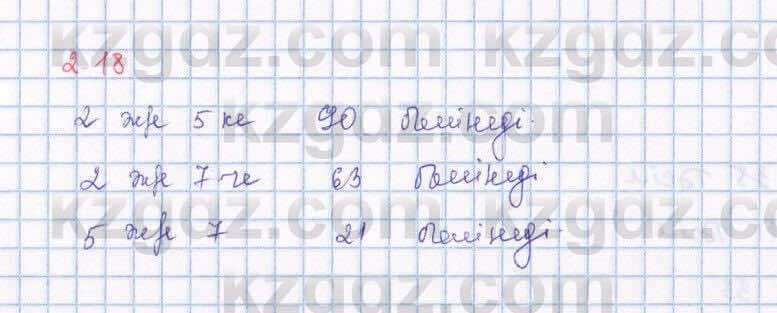 kzgdz.com kzgdz.com
2.18
2 және 5 ке 90 бөлінеді.
kzgdz.com
2 және 7-ге 63 бөлінеді
kzgdz.com kzgdz.com
5 және 7 21 бөлінеді.
kzgdz.com